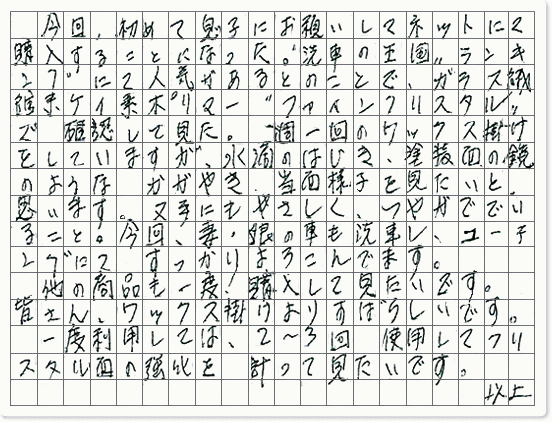 今回、初めて息子にお願いしてネットにて
購入することになった。"洗車の王国"ランキ
ングにて人気があるとのことで、ガラス繊
維系ケイ素ポリマー "ファインクリスタル"
で 確認して見た。 週一回のワックス掛け
をしていますが、水滴のはじき、塗装面の鏡
のような かがやき、当面様子を見たいと
思います。又手にもやさしく、つやがでてい
ること。今回、妻・娘の車も洗車し、コーテ
ングにて すっかりよろこんでます。
他の商品も一度!購入して見たいです。
皆さん、ワックス掛けよりすばらしいです。
一度利用しては、2〜3回 使用してクリ
スタル面の強化を 計って見たいです。
以上